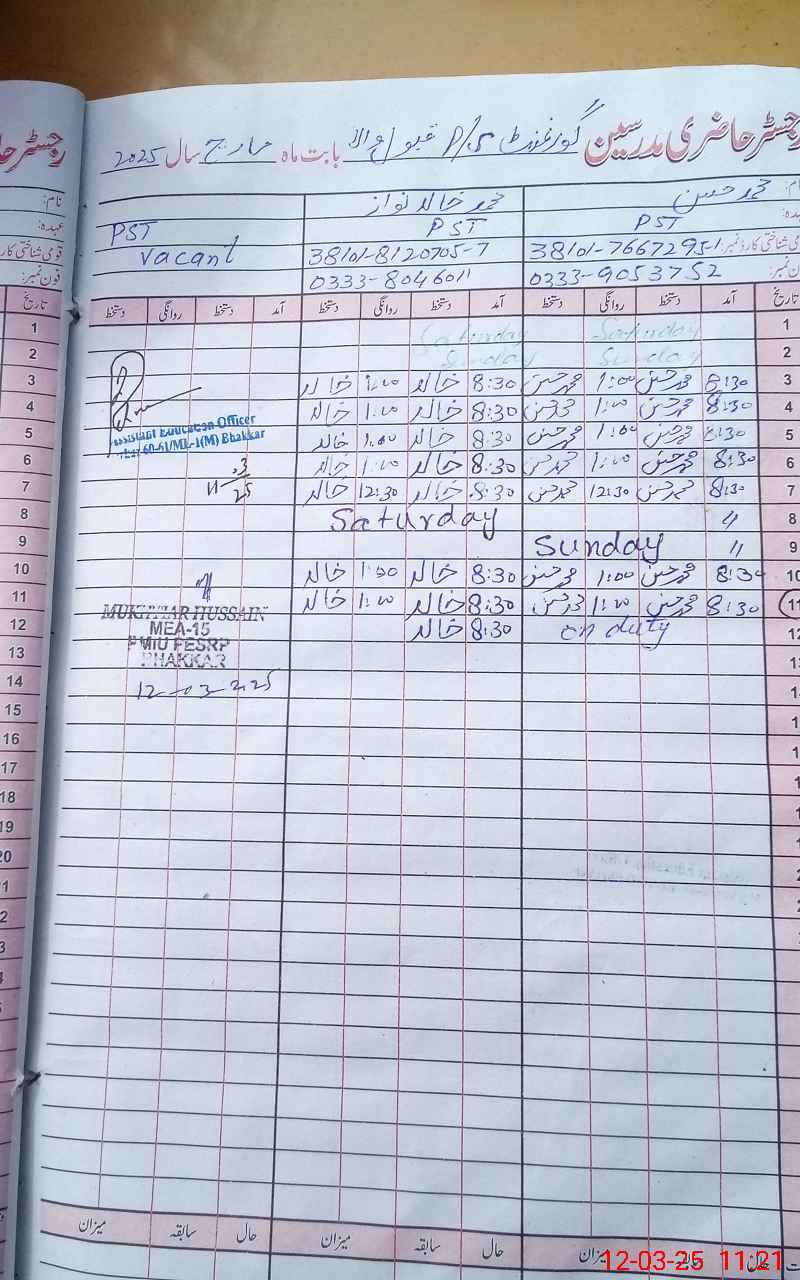 رجسٹر حاضری مدرسین گورنمنٹ P/S بابت ماہ مارچ سال 2025
نام: محمد حسن محمد خالد نواز
عہدہ: PST PST PST
قومی شناختی کارڈ نمبر: 38101-8120705-7 Vacant
فون نمبر: 0333-9053752 0333-8046011
تاریخ آمد دستخط روانگی دستخط آمد دستخط روانگی دستخط آمد دستخط روانگی دستخط
1 Saturday Saturday
2 Sunday Sunday
3 8:30 محمد حسن 1:00 محمد حسن 8:30 خالد 1:00 خالد
4 8:30 محمد حسن 1:00 محمد حسن 8:30 خالد 1:00 خالد
Assistant Education Officer
5 8:30 محمد حسن 1:00 محمد حسن 8:30 خالد 1:00 خالد
(M) Bhakkar
6 8:30 محمد حسن 1:00 محمد حسن 8:30 خالد 1:00 خالد
7 8:30 محمد حسن 12:30 محمد حسن 8:30 خالد 12:30 خالد
11.3
25
8 〃 Saturday
9 〃 Sunday
10 8:30 محمد حسن 1:00 محمد حسن 8:30 خالد 1:00 خالد
11 8:30 محمد حسن 1:00 محمد حسن 8:30 خالد 1:00 خالد
MUKHTIAR HUSSAIN
12 on duty 8:30 خالد
MEA-15
13
PMIU PESRP
BHAKKAR
14
12-03-2025
15
16
17
18
19
20
حال سابقہ میزان حال سابقہ میزان حال میزان
12-03-25 11:21